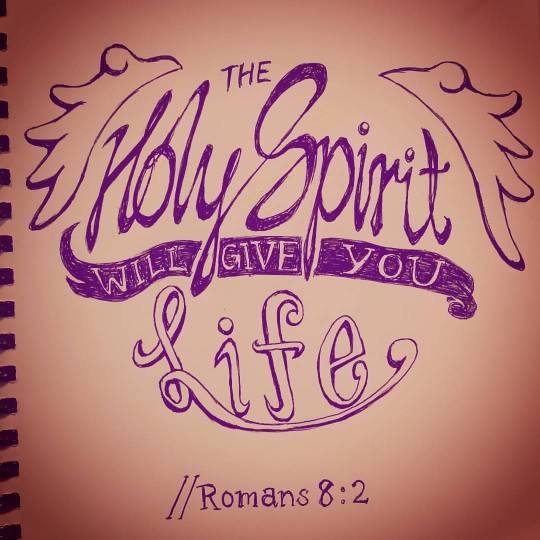 THE
Holy Spirit
WILL GIVE YOU
Life
//Romans 8:2